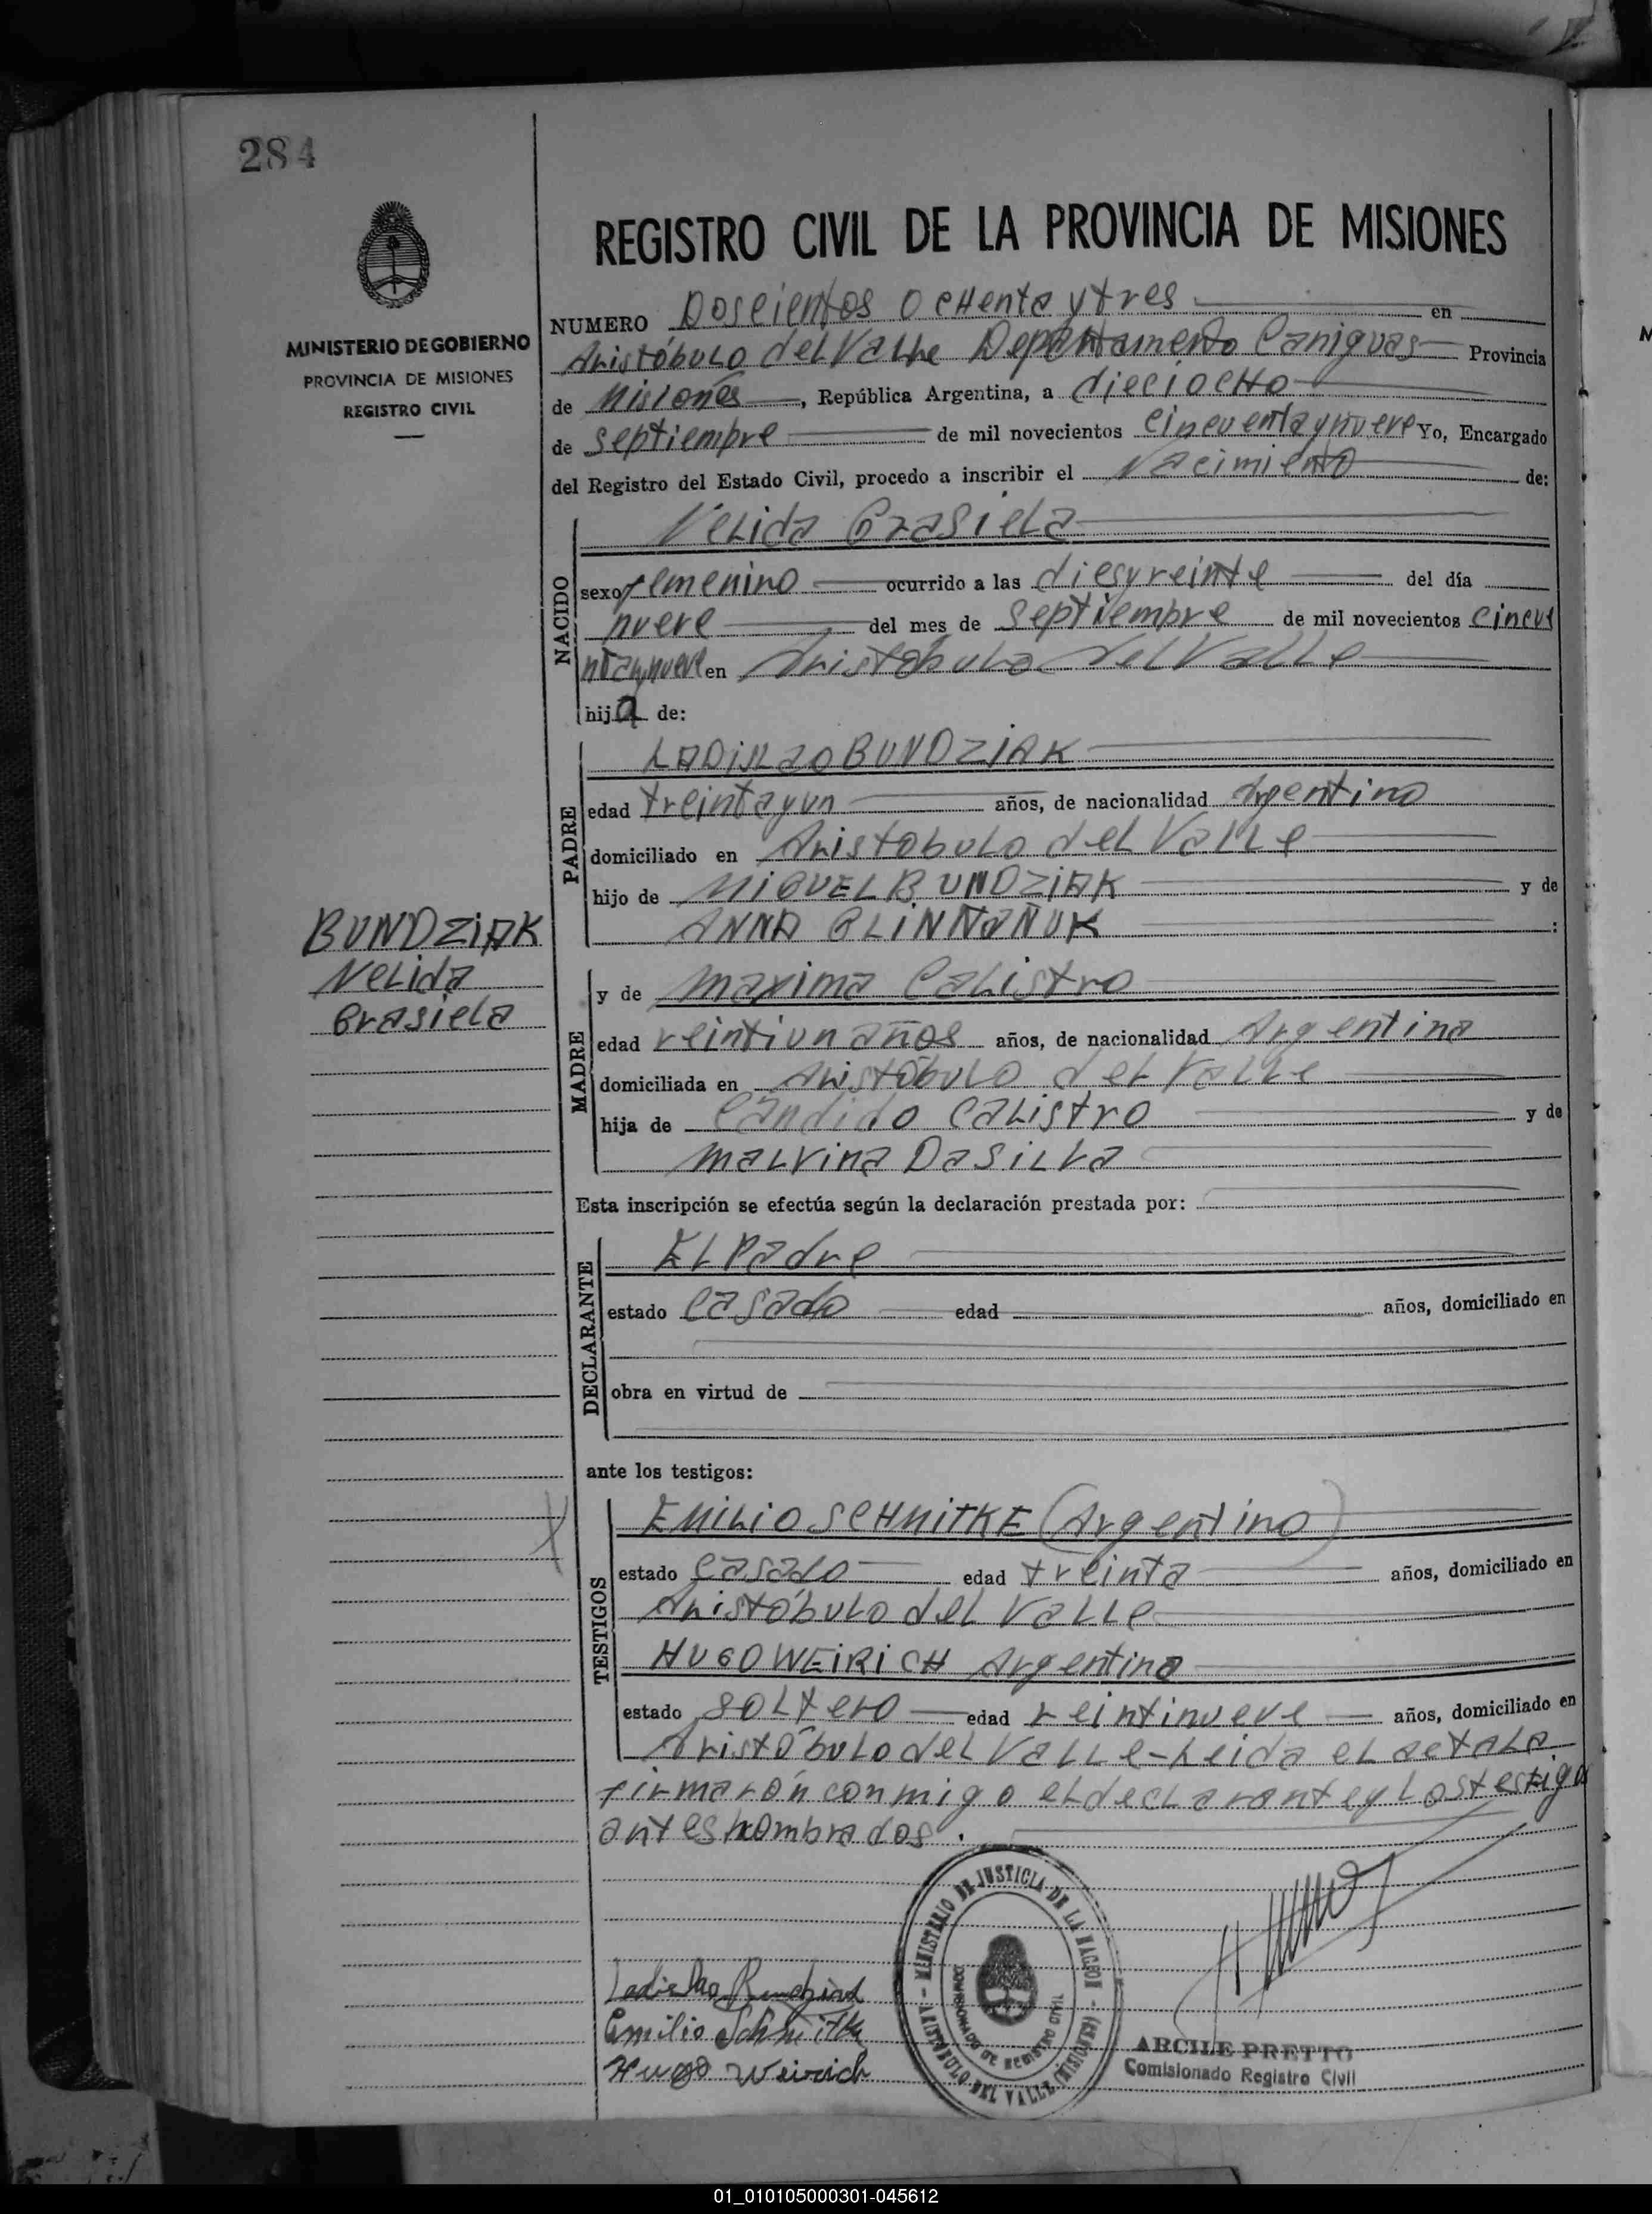 284
REGISTRO CIVIL DE LA PROVINCIA DE MISIONES
MINISTERIO DE GOBIERNO
PROVINCIA DE MISIONES
REGISTRO CIVIL
NUMERO Doscientos ocHenta y tres en
Aristóbulo del Valle Departamento Cainguas Provincia
de Misiones, República Argentina, a dieciocHo
de septiembre de mil novecientos cincuenta y nueve Yo, Encargado
del Registro del Estado Civil, procedo a inscribir el Nacimiento de:
NACIDO
Nelida Grasiela
sexo femenino ocurrido a las diesyveinte del día
nueve del mes de septiembre de mil novecientos cincue
ntaynueve en Aristóbulo del Valle
hija de:
PADRE
LADISLao BUNDZIAK
edad treinta y un años, de nacionalidad Argentino
domiciliado en Aristobulo del Valle
hijo de MIGUEL BUNDZIAK y de
ANNA
BUNDZIAK
Nelida
Grasiela
MADRE
y de Maxima Calistro
edad veintiun años años, de nacionalidad Argentina
domiciliada en Aristóbulo del Valle
hija de Candido Calistro y de
Malvina Da Silva
Esta inscripción se efectúa según la declaración prestada por:
DECLARANTE
El Padre
estado casado edad años, domiciliado en
obra en virtud de
ante los testigos:
TESTIGOS
EMILIO SCHNITKE (Argentino)
estado casado edad treinta años, domiciliado en
Aristóbulo del Valle
HUGO WEIRICH Argentino
estado soltero edad veintinueve años, domiciliado en
Aristóbulo del Valle - Leida el acta la
firmarón conmigo el declarante y los testigos
antes nombrados.
MINISTERIO DE JUSTICIA DE LA NACION - ARISTOBULO DEL VALLE (MISIONES) -
COMISIONADO DE REGISTRO CIVIL
Ladislao Bundziak
Emilio Schnitke
Hugo Weirich
ARCILE PRETTO
Comisionado Registro Civil
01_010105000301-045612